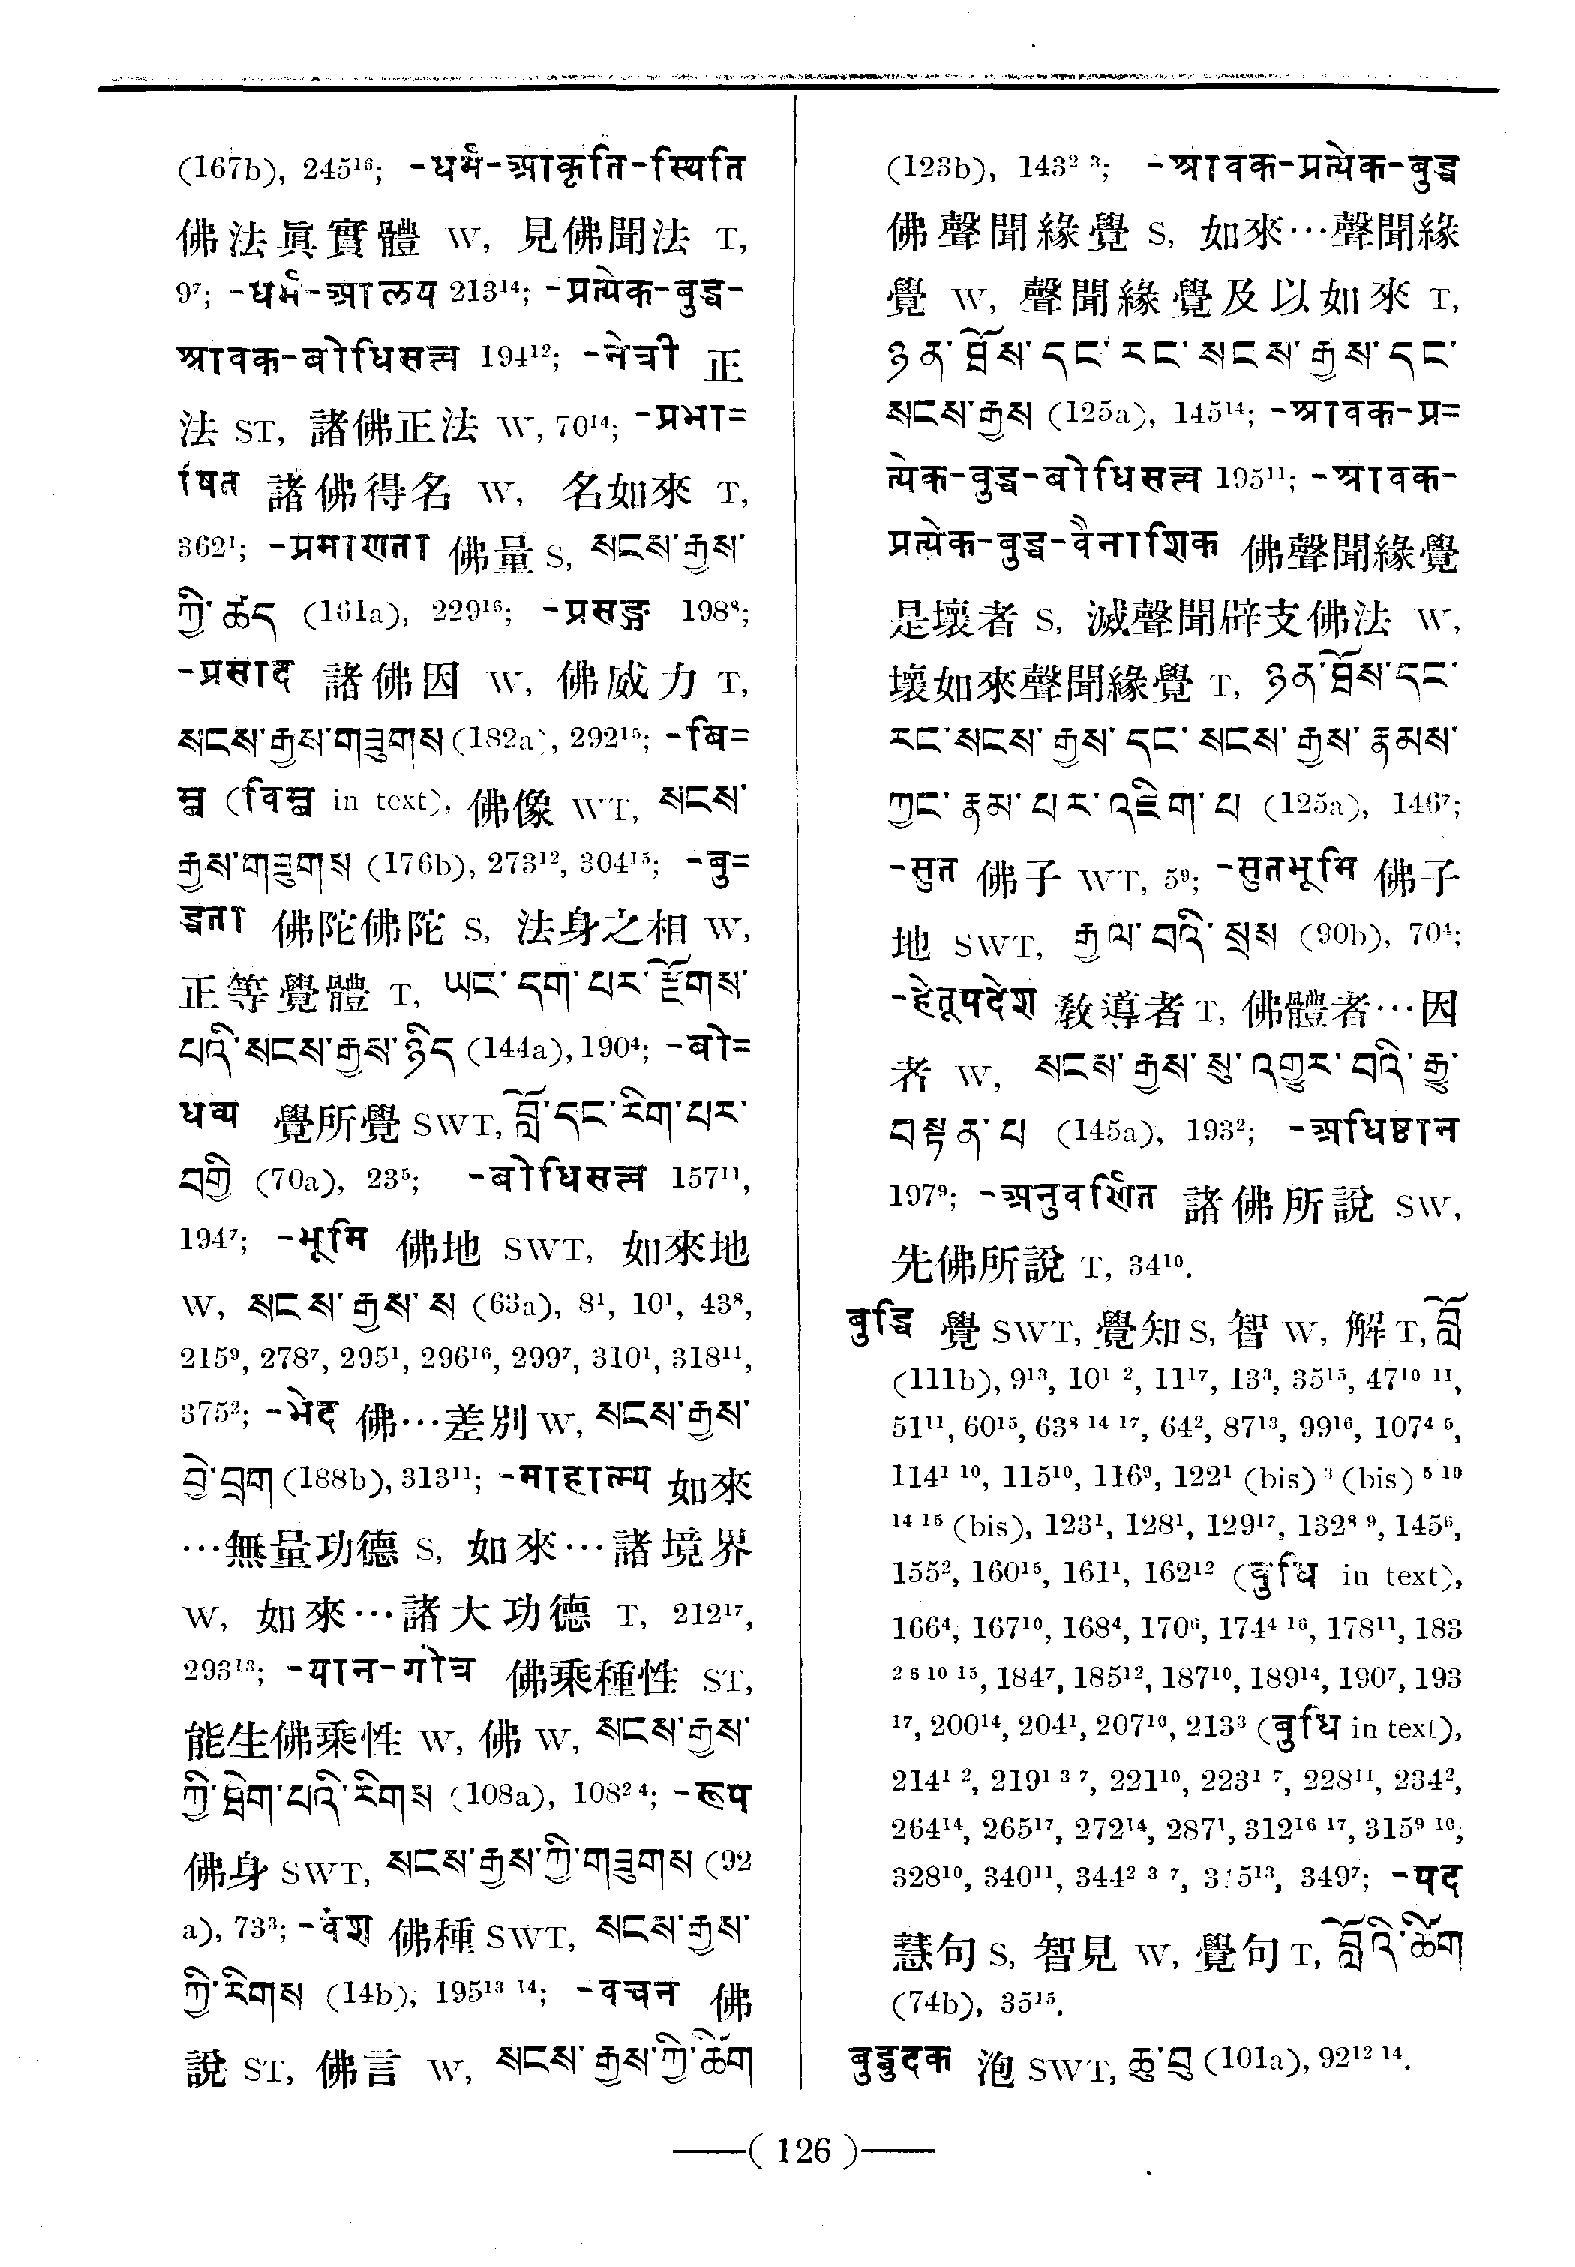 (167b), 245¹⁶; -धर्म-आकृति-स्थिति
佛法眞實體 W, 見佛聞法 T,
9⁷; -धर्म-आलय 213¹⁴; -प्रत्येक-बुद्ध-
श्रावक-बोधिसत्त्व 194¹²; -नेत्री 正
法 ST, 諸佛正法 W, 70¹⁴; -प्रभा=
षित 諸佛得名 W, 名如來 T,
362¹; -प्रमाणता 佛量 S, སངས་རྒྱས་
ཀྱི་ཚད (161a), 229¹⁶; -प्रसङ्ग 198⁸;
-प्रसाद 諸佛因 W, 佛威力 T,
སངས་རྒྱས་གཟུགས (182a), 292¹⁵; -बि=
म्ब (विम्ब in text), 佛像 WT, སངས་
རྒྱས་གཟུགས (176b), 273¹², 304¹⁵; -बु=
द्धता 佛陀佛陀 S, 法身之相 W,
正等覺體 T, ཡང་དག་པར་རྫོགས་
པའི་སངས་རྒྱས་ཉིད (144a), 190⁴; -बो=
धव्य 覺所覺 SWT, བློ་དང་རིག་པར་
བགྱི (70a), 23⁵; -बोधिसत्त्व 157¹¹,
194⁷; -भूमि 佛地 SWT, 如來地
W, སངས་རྒྱས་ས (63a), 8¹, 10¹, 43⁸,
215⁹, 278⁷, 295¹, 296¹⁶, 299⁷, 310¹, 318¹¹,
375²; -भेद 佛⋯差別 W, སངས་རྒྱས་
བྱེ་བྲག (188b), 313¹¹; -माहात्म्य 如來
⋯無量功德 S, 如來⋯諸境界
W, 如來⋯諸大功德 T, 212¹⁷,
293¹³; -यान-गोत्र 佛乘種性 ST,
能生佛乘性 W, 佛 W, སངས་རྒྱས་
ཀྱི་ཐེག་པའི་རིགས (108a), 108² ⁴; -रूप
佛身 SWT, སངས་རྒྱས་ཀྱི་གཟུགས (92
a), 73³; -वंश 佛種 SWT, སངས་རྒྱས་
ཀྱི་རིགས (14b), 195¹³ ¹⁴; -वचन 佛
說 ST, 佛言 W, སངས་རྒྱས་ཀྱི་ཚིག
(123b), 143² ³; -श्रावक-प्रत्येक-बुद्ध
佛聲聞緣覺 S, 如來⋯聲聞緣
覺 W, 聲聞緣覺及以如來 T,
ཉན་ཐོས་དང་རང་སངས་རྒྱས་དང་
སངས་རྒྱས (125a), 145¹⁴; -श्रावक-प्र=
त्येक-बुद्ध-बोधिसत्त्व 195¹¹; -श्रावक-
प्रत्येक-बुद्ध-वैनाशिक 佛聲聞緣覺
是壞者 S, 滅聲聞辟支佛法 W,
壞如來聲聞緣覺 T, ཉན་ཐོས་དང་
རང་སངས་རྒྱས་དང་སངས་རྒྱས་རྣམས་
ཀྱང་རྣམ་པར་འཇིག་པ (125a), 146⁷;
-सुत 佛子 WT, 5⁹; -सुतभूमि 佛子
地 SWT, རྒྱལ་བའི་སྲས (90b), 70⁴;
-हेतूपदेश 敎導者 T, 佛體者⋯因
者 W, སངས་རྒྱས་སུ་འགྱུར་བའི་རྒྱུ་
བསྟན་པ (145a), 193²; -अधिष्ठान
197⁹; -अनुवर्णित 諸佛所說 SW,
先佛所說 T, 34¹⁰.
बुद्धि 覺 SWT, 覺知 S, 智 W, 解 T, བློ
(111b), 9¹³, 10¹ ², 11¹⁷, 13³, 35¹⁵, 47¹⁰ ¹¹,
51¹¹, 60¹⁵, 63⁸ ¹⁴ ¹⁷, 64², 87¹³, 99¹⁶, 107⁴ ⁵,
114¹ ¹⁰, 115¹⁰, 116⁹, 122¹ (bis) ³ (bis) ⁵ ¹⁰
¹⁴ ¹⁵ (bis), 123¹, 128¹, 129¹⁷, 132⁸ ⁹, 145⁶,
155², 160¹⁵, 161¹, 162¹² (बुधि in text),
166⁴, 167¹⁰, 168⁴, 170⁶, 174⁴ ¹⁶, 178¹¹, 183
² ⁶ ¹⁰ ¹⁵, 184⁷, 185¹², 187¹⁰, 189¹⁴, 190⁷, 193
¹⁷, 200¹⁴, 204¹, 207¹⁰, 213³ (बुधि in text),
214¹ ², 219¹ ³ ⁷, 221¹⁰, 223¹ ⁷, 228¹¹, 234²,
264¹⁴, 265¹⁷, 272¹⁴, 287¹, 312¹⁶ ¹⁷, 315⁹ ¹⁰,
328¹⁰, 340¹¹, 344² ³ ⁷, 349⁷; -पद
慧句 S, 智見 W, 覺句 T, བློའི་ཚིག
(74b), 35¹⁵.
बुद्बुदक 泡 SWT, ཆུ་བུ (101a), 92¹² ¹⁴.
(126)